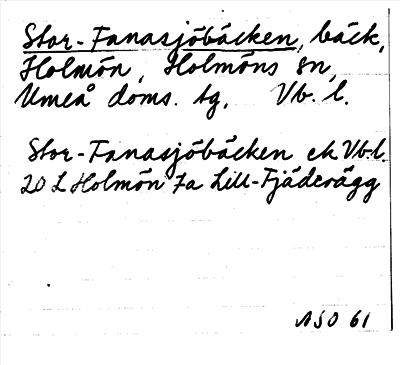 Stor-Fanasjöbäcken, bäck,
Holmön, Holmöns sn,
Umeå doms. tg. Vb. l.
Stor-Fanasjöbäcken ek Vb.l.
20 L Holmön 7a Lill-Fjäderägg
ASO 61